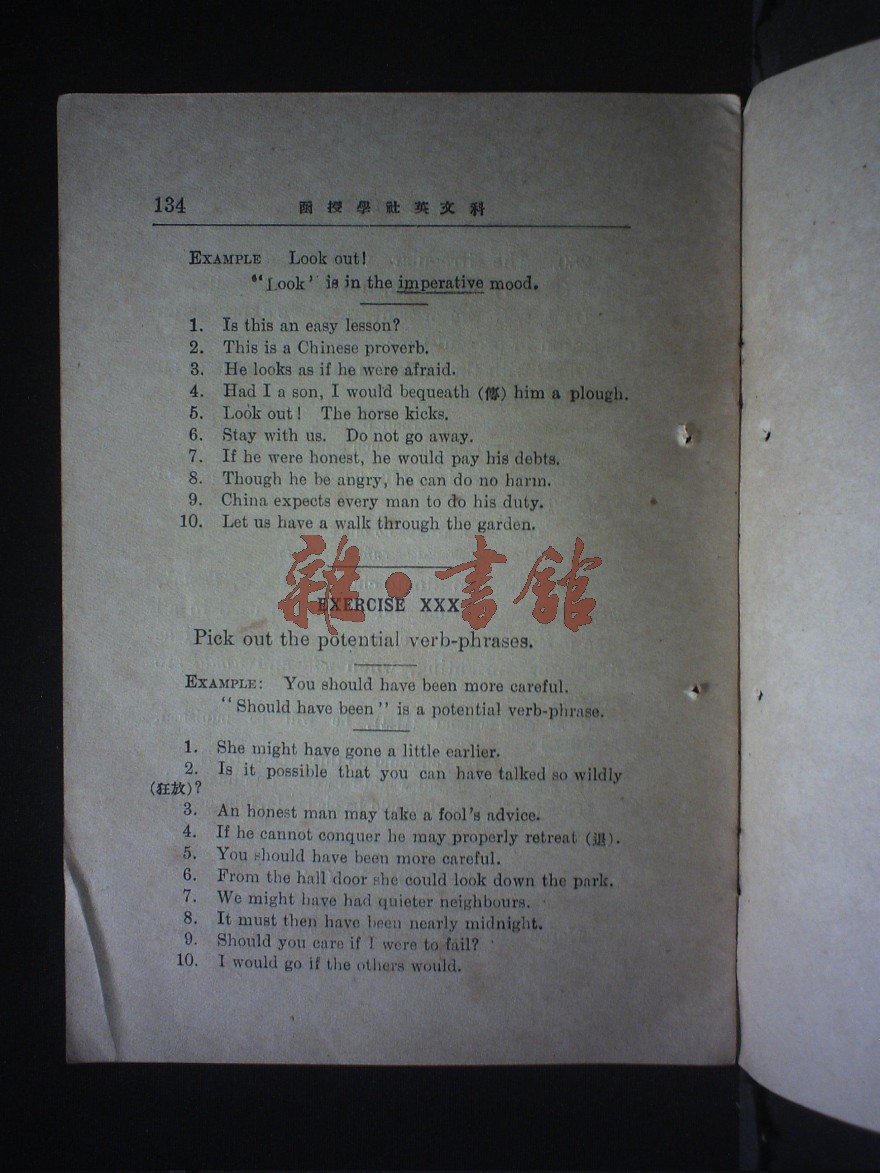 134 函授學社英文科
EXAMPLE Look out!
"Look' is in the imperative mood.
1. Is this an easy lesson?
2. This is a Chinese proverb.
3. He looks as if he were afraid.
4. Had I a son, I would bequeath (傳) him a plough.
5. Look out! The horse kicks.
6. Stay with us. Do not go away.
7. If he were honest, he would pay his debts.
8. Though he be angry, he can do no harm.
9. China expects every man to do his duty.
10. Let us have a walk through the garden.
雜·書館
EXERCISE XXX
Pick out the potential verb-phrases.
EXAMPLE: You should have been more careful.
"Should have been" is a potential verb-phrase.
1. She might have gone a little earlier.
2. Is it possible that you can have talked so wildly
(狂放)?
3. An honest man may take a fool's advice.
4. If he cannot conquer he may properly retreat (退).
5. You should have been more careful.
6. From the hall door she could look down the park.
7. We might have had quieter neighbours.
8. It must then have been nearly midnight.
9. Should you care if I were to fail?
10. I would go if the others would.